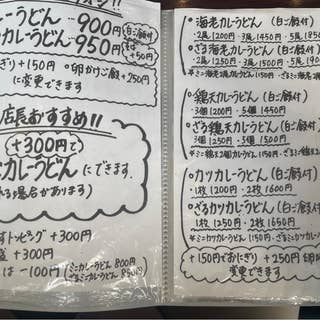 カレーうどん…900円(白ご飯付)
カレーうどん…950円
そば +50円
おにぎり+150円 ・卵かけご飯+250円
に変更できます
店長おすすめ!!
+300円で
カレーうどんにできます。
場合があります)
トッピング +300円
+300円
は −100円 (ミニカレーうどん 800円
ざるミニカレーうどん 850円)
○海老カレーうどん (白ご飯付)
・2尾 1200円・3尾 1450円・5尾
○ざる海老カレーうどん (白ご飯付)
・2尾 1250円・3尾 1500円・5尾
※ミニ海老2尾カレーうどん 1150円
○鶏天カレーうどん (白ご飯付)
・3個 1200円・5個 1450円
○ざる鶏天カレーうどん (白ご飯付)
・3個 1250円・5個 1500円
○カツカレーうどん (白ご飯付)
・1枚 1200円・2枚 1600円
○ざるカツカレーうどん (白ご飯付)
・1枚 1250円・2枚 1650円
※ミニカツカレーうどん 1150円・ざるミニカツカレーうどん
+150円でおにぎり +250円 卵
変更できます